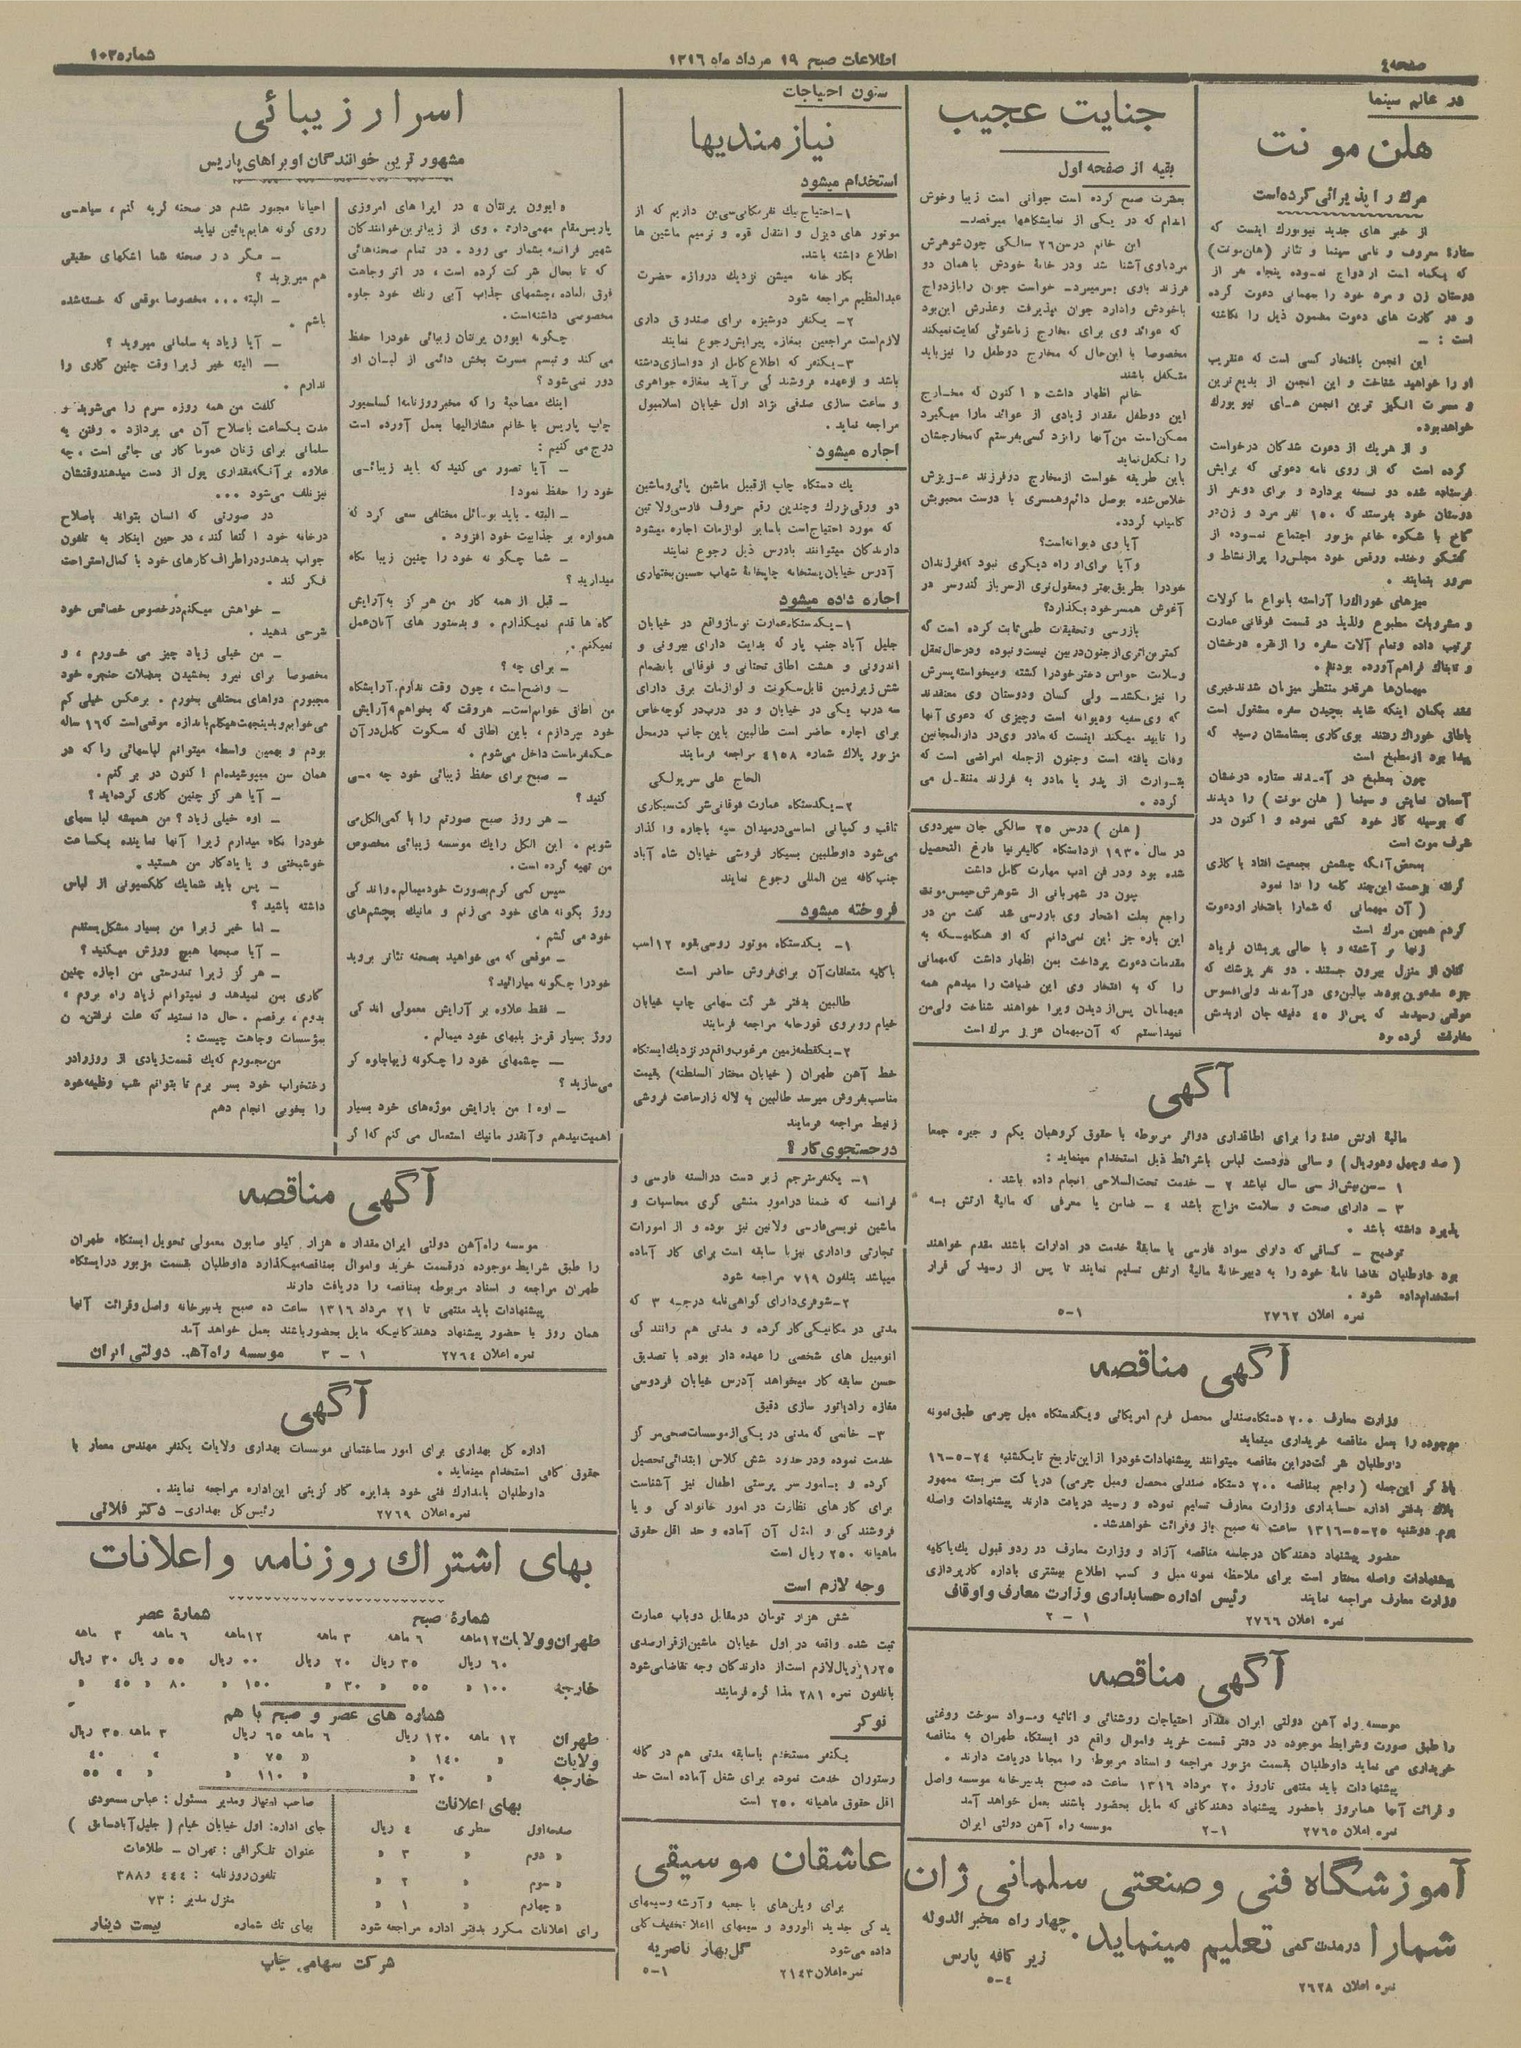 صفحه ٤
اطلاعات صبح ١٩ مرداد ماه ١٣١٦
شماره ١٠٣
در عالم سینما
هلن مونت
مرك را پذیرائی کرده است
از خبر های جدید نیویورك اینست که
ستارهٔ معروف و نامی سینما و تئاتر (هلن مونت)
که یکماه است ازدواج نموده پنجاه نفر از
دوستان زن و مرد خود را بمهمانی دعوت کرده
و در کارت های دعوت مضمون ذیل را نگاشته
است : ـ
این انجمن بافتخار کسی است که عنقریب
او را خواهید شناخت و این انجمن از بدیع ترین
و مسرت انگیز ترین انجمن های نیو یورك
خواهد بود.
و از هریك از دعوت شدگان درخواست
کرده است که از روی نامه دعوتی که برایش
فرستاده شده دو نسخه بردارد و برای دو نفر از
دوستان خود بفرستد که ١٥٠ نفر مرد و زن در
کاخ با شکوه خانم مزبور اجتماع نموده از
گفتگو وخنده ورقص خود مجلس را پر از نشاط و
سرور بنمایند .
میزهای خوراك را آراسته بانواع ما کولات
و مشروبات مطبوع ولذیذ در قسمت فوقانی عمارت
ترتیب داده وتمام آلات سفره را از نقره درخشان
و تابناك فراهم آورده بودند.
میهمان‌ها هرقدر منتظر میزبان شدند خبری
نشد بگمان اینکه شاید بچیدن سفره مشغول است
باطاق خوراك رفتند بوی کاری بمشامشان رسید که
پیدا بود از مطبخ است
چون بمطبخ در آمدند ستاره درخشان
آسمان نمایش و سینما ( هلن مونت ) را دیدند
که بوسیله گاز خود کشی نموده و اکنون در
شرف موت است
بمحض آنکه چشمش بجمعیت افتاد با کازی
گرفته بزحمت این چند کلمه را ادا نمود
( آن میهمانی که شما را بافتخار او دعوت
کردم همین مرك است
زنها بر آشفته و با حالی پریشان فریاد
کنان از منزل بیرون جستند . دو نفر پزشك که
جزء مدعوین بودند ببالین وی درآمدند ولی افسوس
موقعی رسیدند که پس از ٤٥ دقیقه جان از بدنش
مفارقت کرده بود
جنایت عجیب
بقیه از صفحه اول
بعشرت صبح کرده است جوانی است زیبا وخوش
اندام که در یکی از نمایشگاهها میرقصد ـ
این خانم در سن ٢٦ سالگی چون شوهرش
مرد با وی آشنا شد و در خانهٔ خودش با همان دو
فرزند باوی بسر میبرد ـ خواست جوان را بازدواج
با خودش وادارد جوان نپذیرفت وعذرش این بود
که عوائد وی برای مخارج زناشوئی کفایت نمیکند
مخصوصا با این حال که مخارج دو طفل را نیز باید
متکفل باشند
خانم اظهار داشت « اکنون که مخارج
این دو طفل مقدار زیادی از عوائد ما را میگیرد
ممکن است من آنها را نزد کسی بفرستم که مخارجشان
را تکفل نماید
باین طریقه خواست از مخارج دو فرزند عزیزش
خلاص شده بوصل دائم وهمسری با درست محبوبش
کامیاب گردد.
آیا وی دیوانه است؟
و آیا برای او راه دیگری نبود که فرزندان
خودرا بطریق بهتر ومعقول تری از سر باز کند و سر در
آغوش همسر خود بگذارد؟
بازرسی و تحقیقات طبی ثابت کرده است که
کمترین اثری از جنون در بین نیست و نبوده ودر حال تعقل
وسلامت حواس دختر خود را کشته ومیخواسته پسرش
را نیز بکشد ـ ولی کسان و دوستان وی معتقدند
که وی سفیه ودیوانه است وچیزی که دعوی آنها
را تایید میکند اینست که مادر وی در دارالمجانین
وفات یافته است وجنون از جمله امراضی است که
بتوارث از پدر یا مادر به فرزند منتقل می
گردد .
( هلن ) در سن ٢٥ سالگی جان سپرد وی
در سال ١٩٣٠ از دانشگاه کالیفرنیا فارغ التحصیل
شده بود ودر فن ادب مهارت کامل داشت
چون در شهربانی از شوهرش جیمس مونت
راجع بعلت انتحار وی بازرسی شد گفت من در
این باره جز این نمی دانم که او هنگامیکه به
مقدمات دعوت پرداخت بمن اظهار داشت که مهمانی
را که به افتخار وی این ضیافت را میدهم همه
میهمانان پس از دیدن ویرا خواهند شناخت ولی من
نمیدانستم که آن میهمان عزیز مرك است
آگهی
مالیهٔ ارتش عدهٔ را برای اطاقداری دوائر مربوطه با حقوق گروهبان یکم و جیره جمعا
( صد وچهل ودو ریال ) و سالی دو دست لباس باشرائط ذیل استخدام مینماید :
١ ـ سن بیش از سی سال نباشد ٢ ـ خدمت تحت السلاحی انجام داده باشد .
٣ ـ دارای صحت و سلامت مزاج باشد ٤ ـ ضامن یا معرفی که مالیهٔ ارتش بپ
پذیرد داشته باشد .
توضیح ـ کسانی که دارای سواد فارسی یا سابقهٔ خدمت در ادارات باشند مقدم خواهند
بود داوطلبان تقاضا نامهٔ خود را به دبیرخانهٔ مالیهٔ ارتش تسلیم نمایند تا پس از رسیدگی قرار
استخدام داده شود .
نمره اعلان ٢٧٦٢ ١ـ٥
آگهی مناقصه
وزارت معارف ٢٠٠ دستگاه صندلی محصل فرم امریکائی ویکدستگاه مبل چرمی طبق نمونه
موجوده را بعمل مناقصه خریداری مینماید
داوطلبان شرکت در این مناقصه میتوانند پیشنهادات خود را از این تاریخ تا یکشنبه ٢٤ـ٥ـ١٦
با ذکر این جمله ( راجع بمناقصه ٢٠٠ دستگاه صندلی محصل ومبل چرمی) در پاکت سربسته ممهور
بلاك بدفتر اداره حسابداری وزارت معارف تسلیم نموده و رسید دریافت دارند پیشنهادات واصله
یوم دوشنبه ٢٥ـ٥ـ١٣١٦ ساعت نه صبح باز وقرائت خواهد شد.
حضور پیشنهاد دهندگان در جلسه مناقصه آزاد و وزارت معارف در رد و قبول یك یا کلیه
پیشنهادات واصله مختار است برای ملاحظه نمونه مبل و کسب اطلاع بیشتری باداره کارپردازی
وزارت معارف مراجعه نمایند رئیس اداره حسابداری وزارت معارف و اوقاف
نمره اعلان ٢٧٦٦ ١ ـ ٢
آگهی مناقصه
موسسه راه آهن دولتی ایران مقدار احتیاجات روشنائی و اثاثیه ومواد سوخت روغنی
را طبق صورت وشرایط موجوده در دفتر قسمت خرید واموال واقع در ایستگاه طهران به مناقصه
خریداری می نماید داوطلبان بقسمت مزبور مراجعه و اسناد مربوطه را مجانا دریافت دارند .
پیشنهادات باید منتهی تا روز ٢٠ مرداد ١٣١٦ ساعت ده صبح بدبیرخانه موسسه واصل
و قرائت آنها همانروز باحضور پیشنهاد دهندگانی که مایل بحضور باشند بعمل خواهد آمد
نمره اعلان ٢٧٦٥ ١ـ٢ موسسه راه آهن دولتی ایران
آموزشگاه فنی و صنعتی سلمانی ژان
شمارا در مدت کمی تعلیم مینماید.
چهار راه مخبر الدوله
زیر کافه پارس
نمره اعلان ٢٦٢٨ ٤ـ٥
ستون احتیاجات
نیازمندیها
استخدام میشود
١ـ احتیاج بیك نفر مکانی سی ین داریم که از
موتور های دیزل و انتقال قوه و ترمیم ماشین ها
اطلاع داشته باشد.
بکار خانه میشن نزدیك دروازه حضرت
عبدالعظیم مراجعه شود
٢ـ یکنفر دوشیزه برای صندوق داری
لازم است مراجعین بمغازه پیرایش رجوع نمایند
٣ـ یکنفر که اطلاع کامل از دواسازی داشته
باشد و از عهده فروشندگی برآید بمغازه جواهری
و ساعت سازی صدقی نژاد اول خیابان اسلامبول
مراجعه نماید .
اجاره میشود
یك دستگاه چاپ از قبیل ماشین پائی وماشین
دو ورقی بزرك و چندین رقم حروف فارسی ولاتین
که مورد احتیاج است با سایر لوازمات اجاره میشود
دارندگان میتوانند بادرس ذیل رجوع نمایند
آدرس خیابان پستخانه چاپخانهٔ شهاب حسین بختیاری
اجاره داده میشود
١ـ یکدستگاه عمارت نوساز واقع در خیابان
جلیل آباد جنب پار که بدایت دارای بیرونی و
اندرونی و هشت اطاق تحتانی و فوقانی بانضمام
شش زیرزمین قابل سکونت و لوازمات برق دارای
سه درب یکی در خیابان و دو درب در کوچه خاص
برای اجاره حاضر است طالبین باین جانب در محل
مزبور پلاك شماره ٤١٥٨ مراجعه فرمایند
الحاج علی سرپولکی
٢ـ یکدستگاه عمارت فوقانی شرکت سیگاری
ثاقب و کمپانی اساسی در میدان سپه باجاره واگذار
می‌شود داوطلبین بسیگار فروشی خیابان شاه آباد
جنب کافه بین المللی رجوع نمایند
فروخته میشود
١ـ یکدستگاه موتور روسی بقوه ١٢ اسب
با کلیه متعلقات آن برای فروش حاضر است
طالبین بدفتر شرکت سهامی چاپ خیابان
خیام روبروی قورخانه مراجعه فرمایند
٢ـ یکقطعه زمین مرغوب واقع در نزدیك ایستگاه
خط آهن طهران ( خیابان مختار السلطنه) بقیمت
مناسب بفروش میرسد طالبین به لاله زار ساعت فروشی
زنیط مراجعه فرمایند
در جستجوی کار ؟
١ـ یکنفر مترجم زبر دست در السنه فارسی و
فرانسه که ضمنا در امور منشی گری محاسبات و
ماشین نویسی فارسی ولاتین نیز بوده و از امورات
تجارتی واداری نیز با سابقه است برای کار آماده
میباشد بتلفون ٧١٩ مراجعه شود
٢ـ شوفری دارای گواهی نامه درجه ٣ که
مدتی در مکانیکی کار کرده و مدتی هم رانندگی
اتومبیل های شخصی را عهده دار بوده با تصدیق
حسن سابقه کار میخواهد آدرس خیابان فردوسی
مغازه رادیاتور سازی دقیق
٣ـ خانمی که مدتی در یکی از موسسات صحی مرکز
خدمت نموده ودر حدود شش کلاس ابتدائی تحصیل
کرده و بامور سر پرستی اطفال نیز آشناست
برای کار های نظارت در امور خانوادگی و یا
فروشندگی و امثال آن آماده و حد اقل حقوق
ماهیانه ٢٥٠ ریال است
وجه لازم است
شش هزار تومان در مقابل دو باب عمارت
ثبت شده واقعه در اول خیابان ماشین از قرار صدی
١٫٢٥ ریال لازم است از دارندگان وجه تقاضا می‌شود
باتلفون نمره ٢٨١ مذاکره فرمایند
نوکر
یکنفر مستخدم باسابقه مدتی هم در کافه
رستوران خدمت نموده برای شغل آماده است حد
اقل حقوق ماهیانه ٢٥٠ است
عاشقان موسیقی
برای ویلن‌های با جعبه و آرشه وسیمهای
یدکی جدید الورود و سیمهای اعلا تخفیف کلی
داده می‌شود گل بهار ناصریه
نمره اعلان ٢١٤٣ ١ـ٥
اسرار زیبائی
مشهور ترین خوانندگان اوبراهای پاریس
« ایوون پرنتان » در اپرا های امروزی
پاریس مقام مهمی دارد . وی از زیباترین خوانندگان
شهیر فرانسه بشمار می رود . در تمام صحنه‌هائی
که تا بحال شرکت کرده است ، در اثر وجاهت
فوق العاده ، چشمهای جذاب آبی رنك خود جلوه
مخصوصی داشته است .
چگونه ایوون پرنتان زیبائی خودرا حفظ
می کند و تبسم مسرت بخش دائمی از لبان او
دور نمی‌شود ؟
اینك مصاحبهٔ را که مخبر روزنامه انسسیور
چاپ پاریس با خانم مشارالیها بعمل آورده است
درج می کنیم :
ـ آیا تصور می کنید که باید زیبائی
خود را حفظ نمود !
ـ البته . باید بوسائل مختلفی سعی کرد که
همواره بر جذابیت خود افزود .
ـ شما چگونه خود را چنین زیبا نگاه
میدارید ؟
ـ قبل از همه کار من هرگز به آرایش
گاه ها قدم نمیگذارم . و بدستور های آنان عمل
نمیکنم .
ـ برای چه ؟
ـ واضح است ، چون وقت ندارم. آرایشگاه
من اطاق خوابم است ـ هر وقت که بخواهم به آرایش
خود بپردازم ، باین اطاقی که سکوت کامل در آن
حکمفرماست داخل می‌شوم .
ـ صبح برای حفظ زیبائی خود چه می
کنید ؟
ـ هر روز صبح صورتم را با کمی الکل می
شویم . این الکل را یك موسسه زیبائی مخصوص
من تهیه کرده است .
سپس کمی کرم بصورت خود میمالم. و اندکی
روژ بگونه های خود می زنم و ماتیك بچشم‌های
خود می کشم .
ـ موقعی که می خواهید بصحنه تئاتر بروید
خودرا چگونه میارائید ؟
ـ فقط علاوه بر آرایش معمولی اندکی
روژ بسیار قرمز بلبهای خود میمالم .
ـ چشمهای خود را چگونه زیبا جلوه گر
می‌سازید ؟
ـ اوه ! من بارایش موژه‌های خود بسیار
اهمیت میدهم و آنقدر ماتیك استعمال می کنم که اگر
احیانا مجبور شدم در صحنه گریه کنم ، سیاهی
روی گونه هایم پائین نیاید
ـ مگر در صحنه شما اشکهای حقیقی
هم میریزید ؟
ـ البته ... مخصوصا موقعی که خسته شده
باشم .
ـ آیا زیاد به سلمانی میروید ؟
ـ البته خیر زیرا وقت چنین کاری را
ندارم .
کلفت من همه روزه سرم را می‌شوید و
مدت یکساعت باصلاح آن می پردازد . رفتن به
سلمانی برای زنان عموما کار بی جائی است ، چه
علاوه بر آنکه مقداری پول از دست میدهند وقتشان
نیز تلف می‌شود ...
در صورتی که انسان بتواند باصلاح
درخانه خود اکتفا کند، در حین اینکار به تلفون
جواب بدهد ودر اطراف کارهای خود با کمال استراحت
فکر کند .
ـ خواهش میکنم درخصوص خصائص خود
شرحی بدهید .
ـ من خیلی زیاد چیز می خورم ، و
مخصوصا برای نیرو بخشیدن بعضلات حنجره خود
مجبورم دواهای مختلفی بخورم . برعکس خیلی کم
می‌خوابم و بدینجهت هیکلم باندازه موقعی است که ١٦ ساله
بودم و بهمین واسطه میتوانم لباسهائی را که در
همان سن میپوشیده‌ام اکنون در بر کنم .
ـ آیا هرگز چنین کاری کرده‌اید ؟
ـ اوه خیلی زیاد ؟ من همیشه لباسهای
خودرا نگاه میدارم زیرا آنها نماینده یکساعت
خوشبختی و یا یادگار من هستند .
ـ پس باید شما یك کلکسیونی از لباس
داشته باشید ؟
ـ اما خیر زیرا من بسیار مشکل پسندم
ـ آیا صبحها هیچ ورزش میکنید ؟
ـ هرگز زیرا تندرستی من اجازه چنین
کاری بمن نمیدهد و نمیتوانم زیاد راه بروم ،
بدوم ، برقصم . حال دانستید که علت نرفتن من
بمؤسسات وجاهت چیست :
من مجبورم که یك قسمت زیادی از روز را در
رختخواب خود بسر برم تا بتوانم شب وظیفه خود
را بخوبی انجام دهم
آگهی مناقصه
موسسه راه آهن دولتی ایران مقدار ٥ هزار کیلو صابون معمولی تحویل ایستگاه طهران
را طبق شرایط موجوده در قسمت خرید واموال بمناقصه میگذارد داوطلبان بقسمت مزبور در ایستگاه
طهران مراجعه و اسناد مربوطه بمناقصه را دریافت دارند
پیشنهادات باید منتهی تا ٢١ مرداد ١٣١٦ ساعت ده صبح بدبیرخانه واصل وقرائت آنها
همان روز با حضور پیشنهاد دهندگانیکه مایل بحضور باشند بعمل خواهد آمد
نمره اعلان ٢٧٦٤ ١ ـ ٣ موسسه راه آهن دولتی ایران
آگهی
اداره کل بهداری برای امور ساختمانی موسسات بهداری ولایات یکنفر مهندس معمار با
حقوق کافی استخدام مینماید .
داوطلبان بامدارك فنی خود بدایره کارگزینی این اداره مراجعه نمایند .
نمره اعلان ٢٧٦٩ رئیس کل بهداری ـ دکتر فلاتی
بهای اشتراك روزنامه و اعلانات
شمارهٔ صبح شمارهٔ عصر
طهران وولایات ١٢ ماهه ٦ ماهه ٣ ماهه ١٢ ماهه ٦ ماهه ٣ ماهه
٦٠ ریال ٣٥ ریال ٢٠ ریال ٥٥ ریال ٣٠ ریال
خارجه ١٠٠ » ٥٥ » ٣٠ » ١٥٠ » ٨٠ » ٤٥ »
شماره های عصر و صبح با هم
طهران ١٢ ماهه ١٢٠ ریال ٦ ماهه ٦٥ ریال ٣ ماهه ٣٥ ریال
ولایات » ١٤٠ » » ٧٥ » » ٤٠
خارجه » » » ١١٠ » » ٥٥
بهای اعلانات
صفحه اول سطری ٤ ریال
» دوم » ٣ »
» سوم » ٢ »
» چهارم » ١ »
برای اعلانات مکرر بدفتر اداره مراجعه شود
صاحب امتیاز ومدیر مسئول : عباس مسعودی
جای اداره: اول خیابان خیام ( جلیل آباد سابق )
عنوان تلگرافی : تهران ـ طلاعات
تلفون روزنامه : ٤٤٤ و ٣٨٨
منزل مدیر : ٧٣
بهای تك شماره بیست دینار
شرکت سهامی چاپ